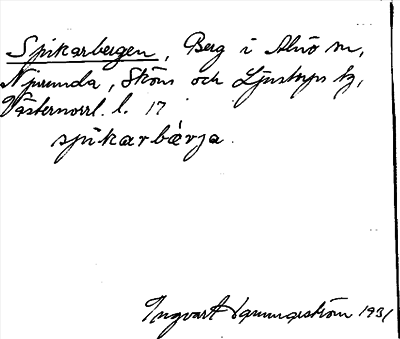 Spikarbergen, Berg i Alnö m,
Njurunda, Sköns och Ljustorps tg,
Västernorrl. l. 17
spikarbärja.
Ingvart 1931